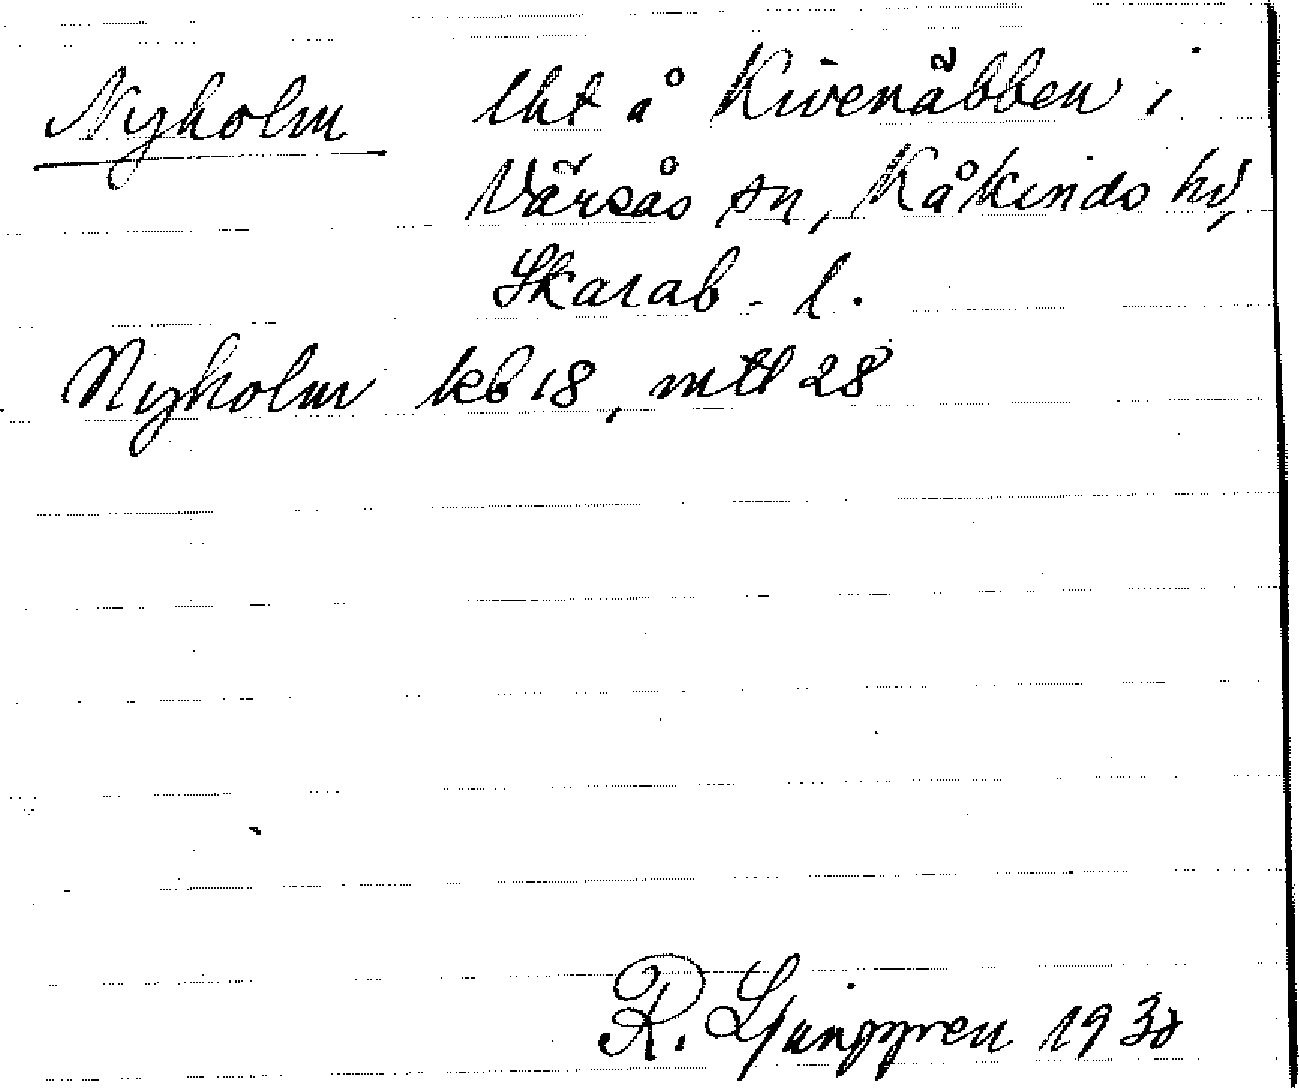 Nyholm lht å Kivenäbben i
Värsås sn, Kåkinds hd,
Skarab. l.
Nyholm kb 18, mtl 28
R. Ljunggren 1930